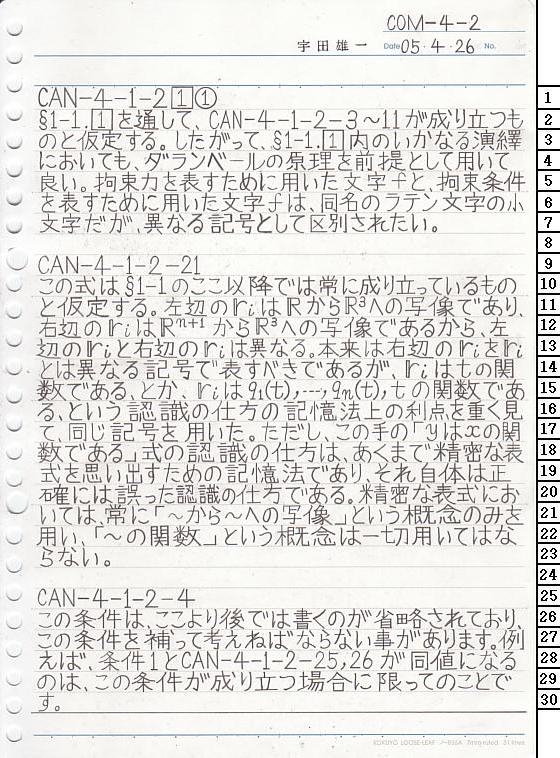 COM-4-2
宇田雄一 Date 05・4・26 No.
CAN-4-1-2 1 ①
§1-1.1を通して、CAN-4-1-2-3〜11が成り立つも
のと仮定する。したがって、§1-1.1内のいかなる演繹
においても、ダランベールの原理を前提として用いて
良い。拘束力を表すために用いた文字fと、拘束条件
を表すために用いた文字fは、同名のラテン文字の小
文字だが、異なる記号として区別されたい。
CAN-4-1-2-21
この式は§1-1のここ以降では常に成り立っているもの
と仮定する。左辺のriはRからR³への写像であり、
右辺のriはRⁿ⁺¹からR³への写像であるから、左
辺のriと右辺のriは異なる。本来は右辺のriをri
とは異なる記号で表すべきであるが、riはtの関
数である、とか、riはq₁(t),…,qn(t),tの関数であ
る、という認識の仕方の記憶法上の利点を重く見
て、同じ記号を用いた。ただし、この手の「yはxの関
数である」式の認識の仕方は、あくまで精密な表
式を思い出すための記憶法であり、それ自体は正
確には誤った認識の仕方である。精密な表式にお
いては、常に「〜から〜への写像」という概念のみを
用い、「〜の関数」という概念は一切用いてはな
らない。
CAN-4-1-2-4
この条件は、ここより後では書くのが省略されており、
この条件を補って考えねばならない事があります。例
えば、条件1とCAN-4-1-2-25,26が同値になる
のは、この条件が成り立つ場合に限ってのことで
す。
KOKUYO LOOSE-LEAF ノ-836A 7mm ruled 31 lines
1
2
3
4
5
6
7
8
9
10
11
12
13
14
15
16
17
18
19
20
21
22
23
24
25
26
27
28
29
30